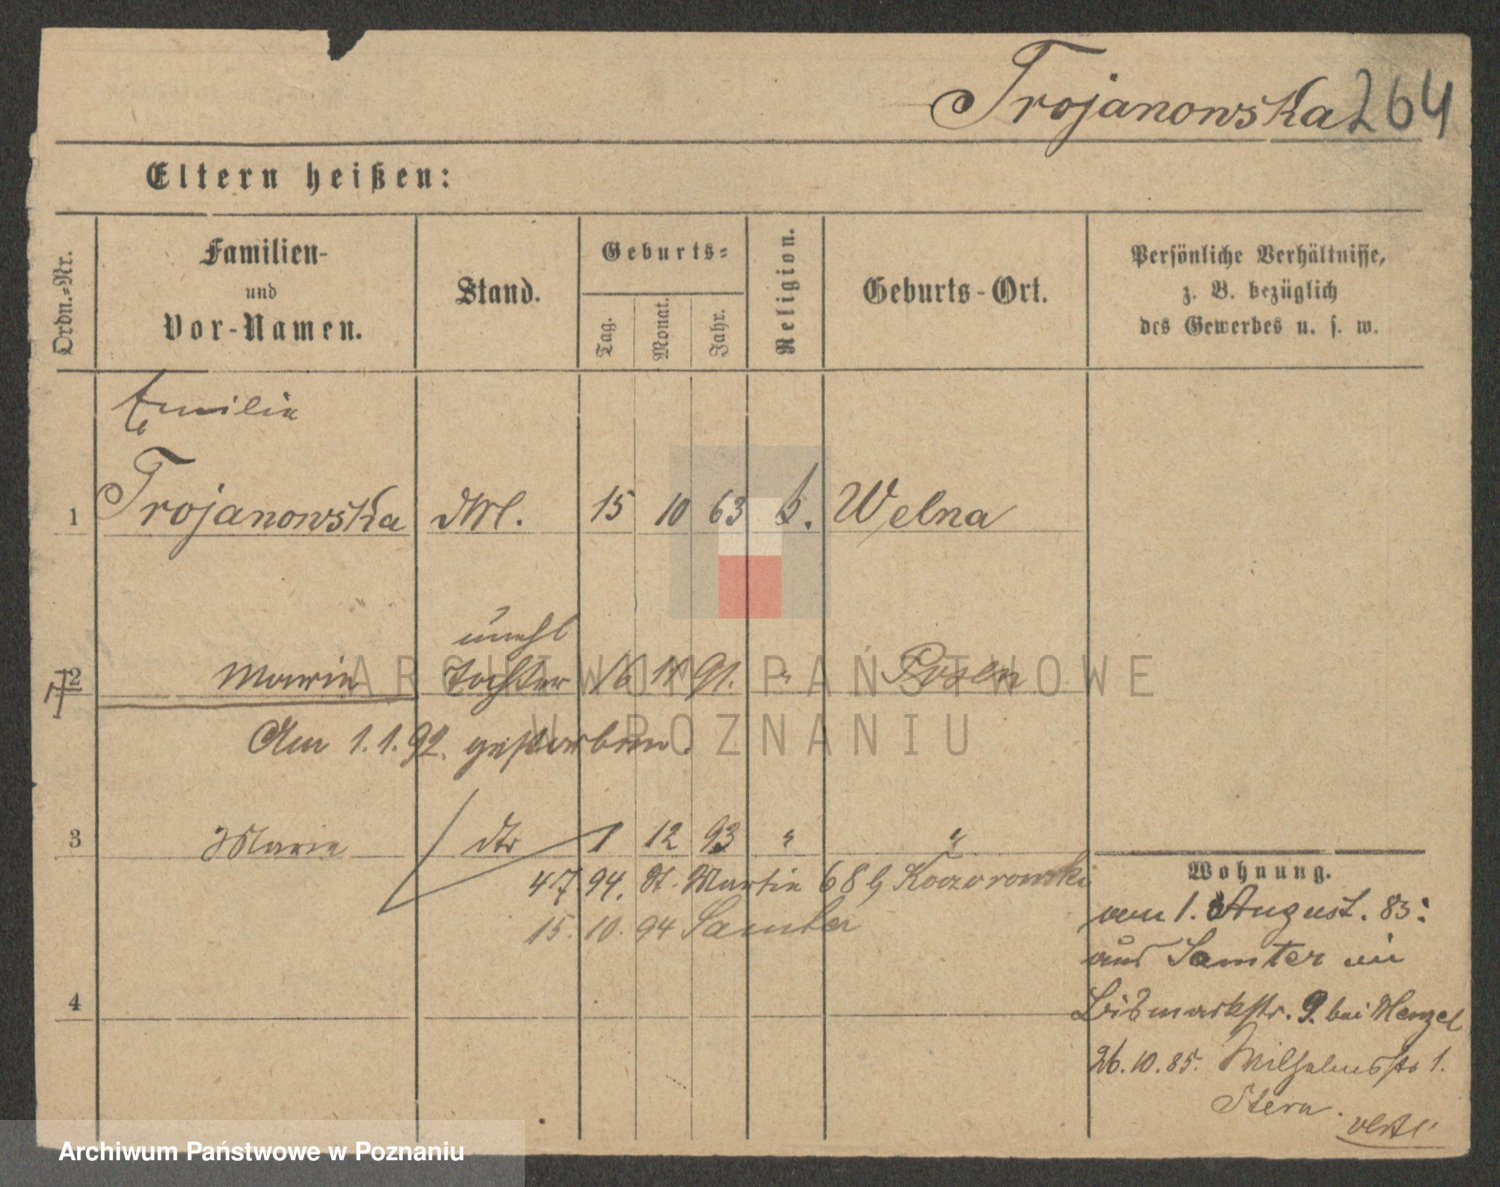 Trojanowska 264
Eltern heißen:
Ordn.-Nr.
Familien-
und
Vor-Namen.
Stand.
Geburts-
Tag.
Monat.
Jahr.
Religion.
Geburts-Ort.
Persönliche Verhältnisse,
z. B. bezüglich
des Gewerbes u. s. w.
Emilie
1 Trojanowska 15 10 63 k. Welna
unehl
2 Marie Tochter 16 11 91. " Posen
Am 1.1.92. gestorben.
3 Marie dto 1 12 93 " "
4 7 94. St. Martin 68 b Koczorowski
15. 10. 94 Samter
4
Wohnung.
vom 1. August. 85:
aus Samter in
Bismarkstr. 9. bei Menzel
26.10.85. Wilhelmsstr 1.
Stern.
ARCHIWUM PAŃSTWOWE
W POZNANIU
Archiwum Państwowe w Poznaniu